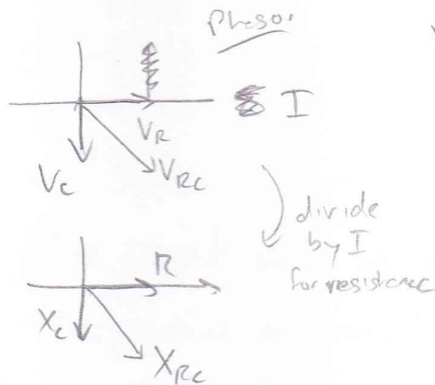 Phasor
I
V_R
V_C
V_RC
divide
by I
for resistence
R
X_C
X_RC